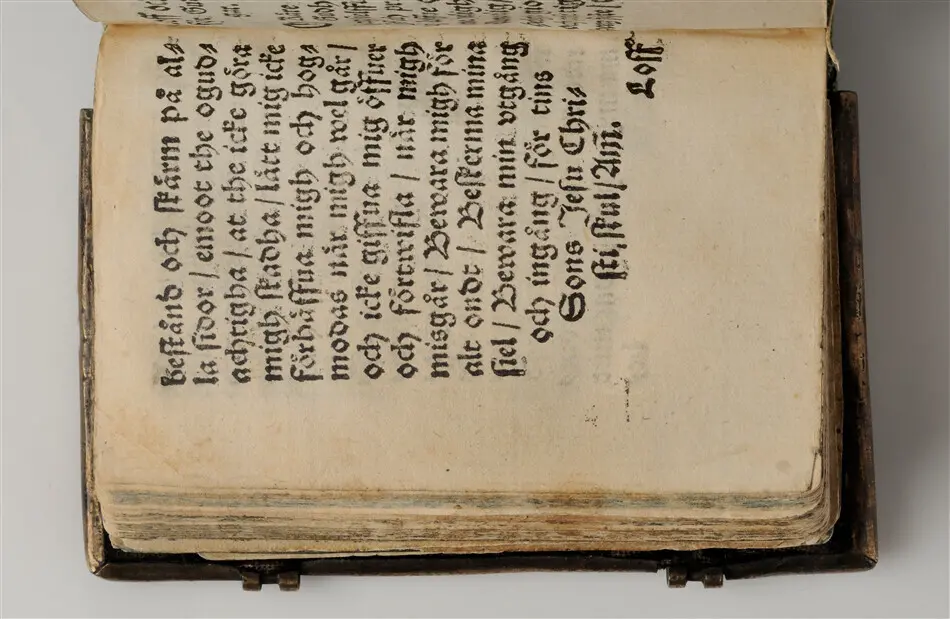 beſtånd och ſkärm på al⸗
la ſidor / emoot the ogud⸗
achtigha / at the icke göra
migh ſkadha / lått mig icke
förhäffua migh och hog⸗
modas når migh wel går /
och icke giffua mig öffuer
och förtwifla / når migh
misgår / Bewara migh för
alt ondt / Beſkerma mina
ſiel / Bewara min vtgång
och ingång / för tins
Sons Jesu Chri⸗
ſti, ſkul / Am̄.
Loff